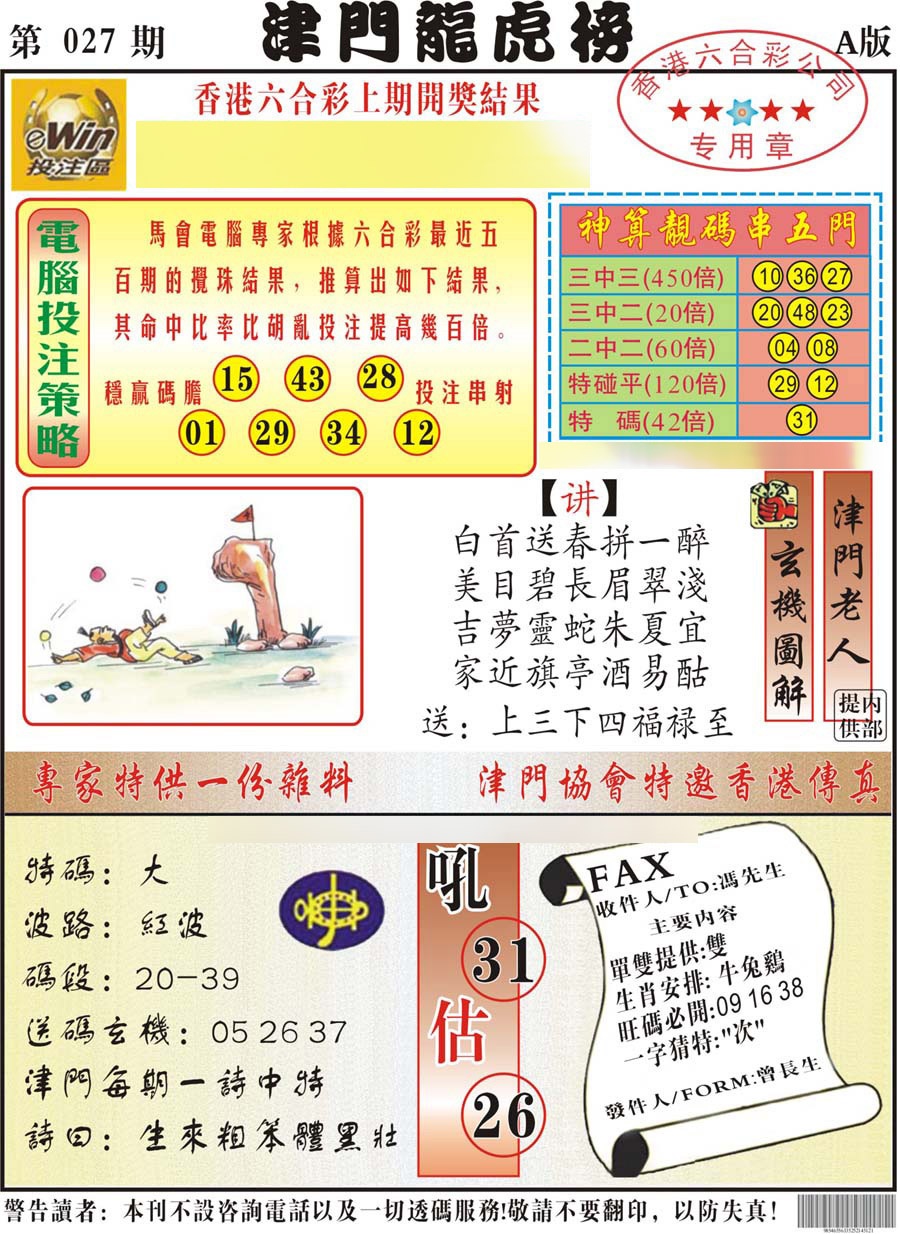 第 027 期
津門龍虎榜
A版
eWin
投注區
香港六合彩上期開獎結果
香港六合彩公司
专用章
電腦投注策略
馬會電腦專家根據六合彩最近五
百期的攪珠結果，推算出如下結果，
其命中比率比胡亂投注提高幾百倍。
穩贏碼膽 15 43 28 投注串射
01 29 34 12
神算靚碼串五門
三中三(450倍) 10 36 27
三中二(20倍) 20 48 23
二中二(60倍) 04 08
特碰平(120倍) 29 12
特 碼(42倍) 31
【讲】
白首送春拼一醉
美目碧長眉翠淺
吉夢靈蛇朱夏宜
家近旗亭酒易酤
送：上三下四福禄至
玄機圖解
津門老人
内部提供
專家特供一份雜料
津門協會特邀香港傳真
特碼：大
波路：紅波
碼段：20-39
送碼玄機：05 26 37
津門每期一詩中特
詩曰：生來粗笨體黑壯
吼
31
估
26
FAX
收件人/TO:馮先生
主要内容
單雙提供:雙
生肖安排:牛兔鷄
旺碼必開:09 16 38
一字猜特:"次"
發件人/FORM:曾長生
警告讀者：本刊不設咨詢電話以及一切透碼服務!敬請不要翻印，以防失真!